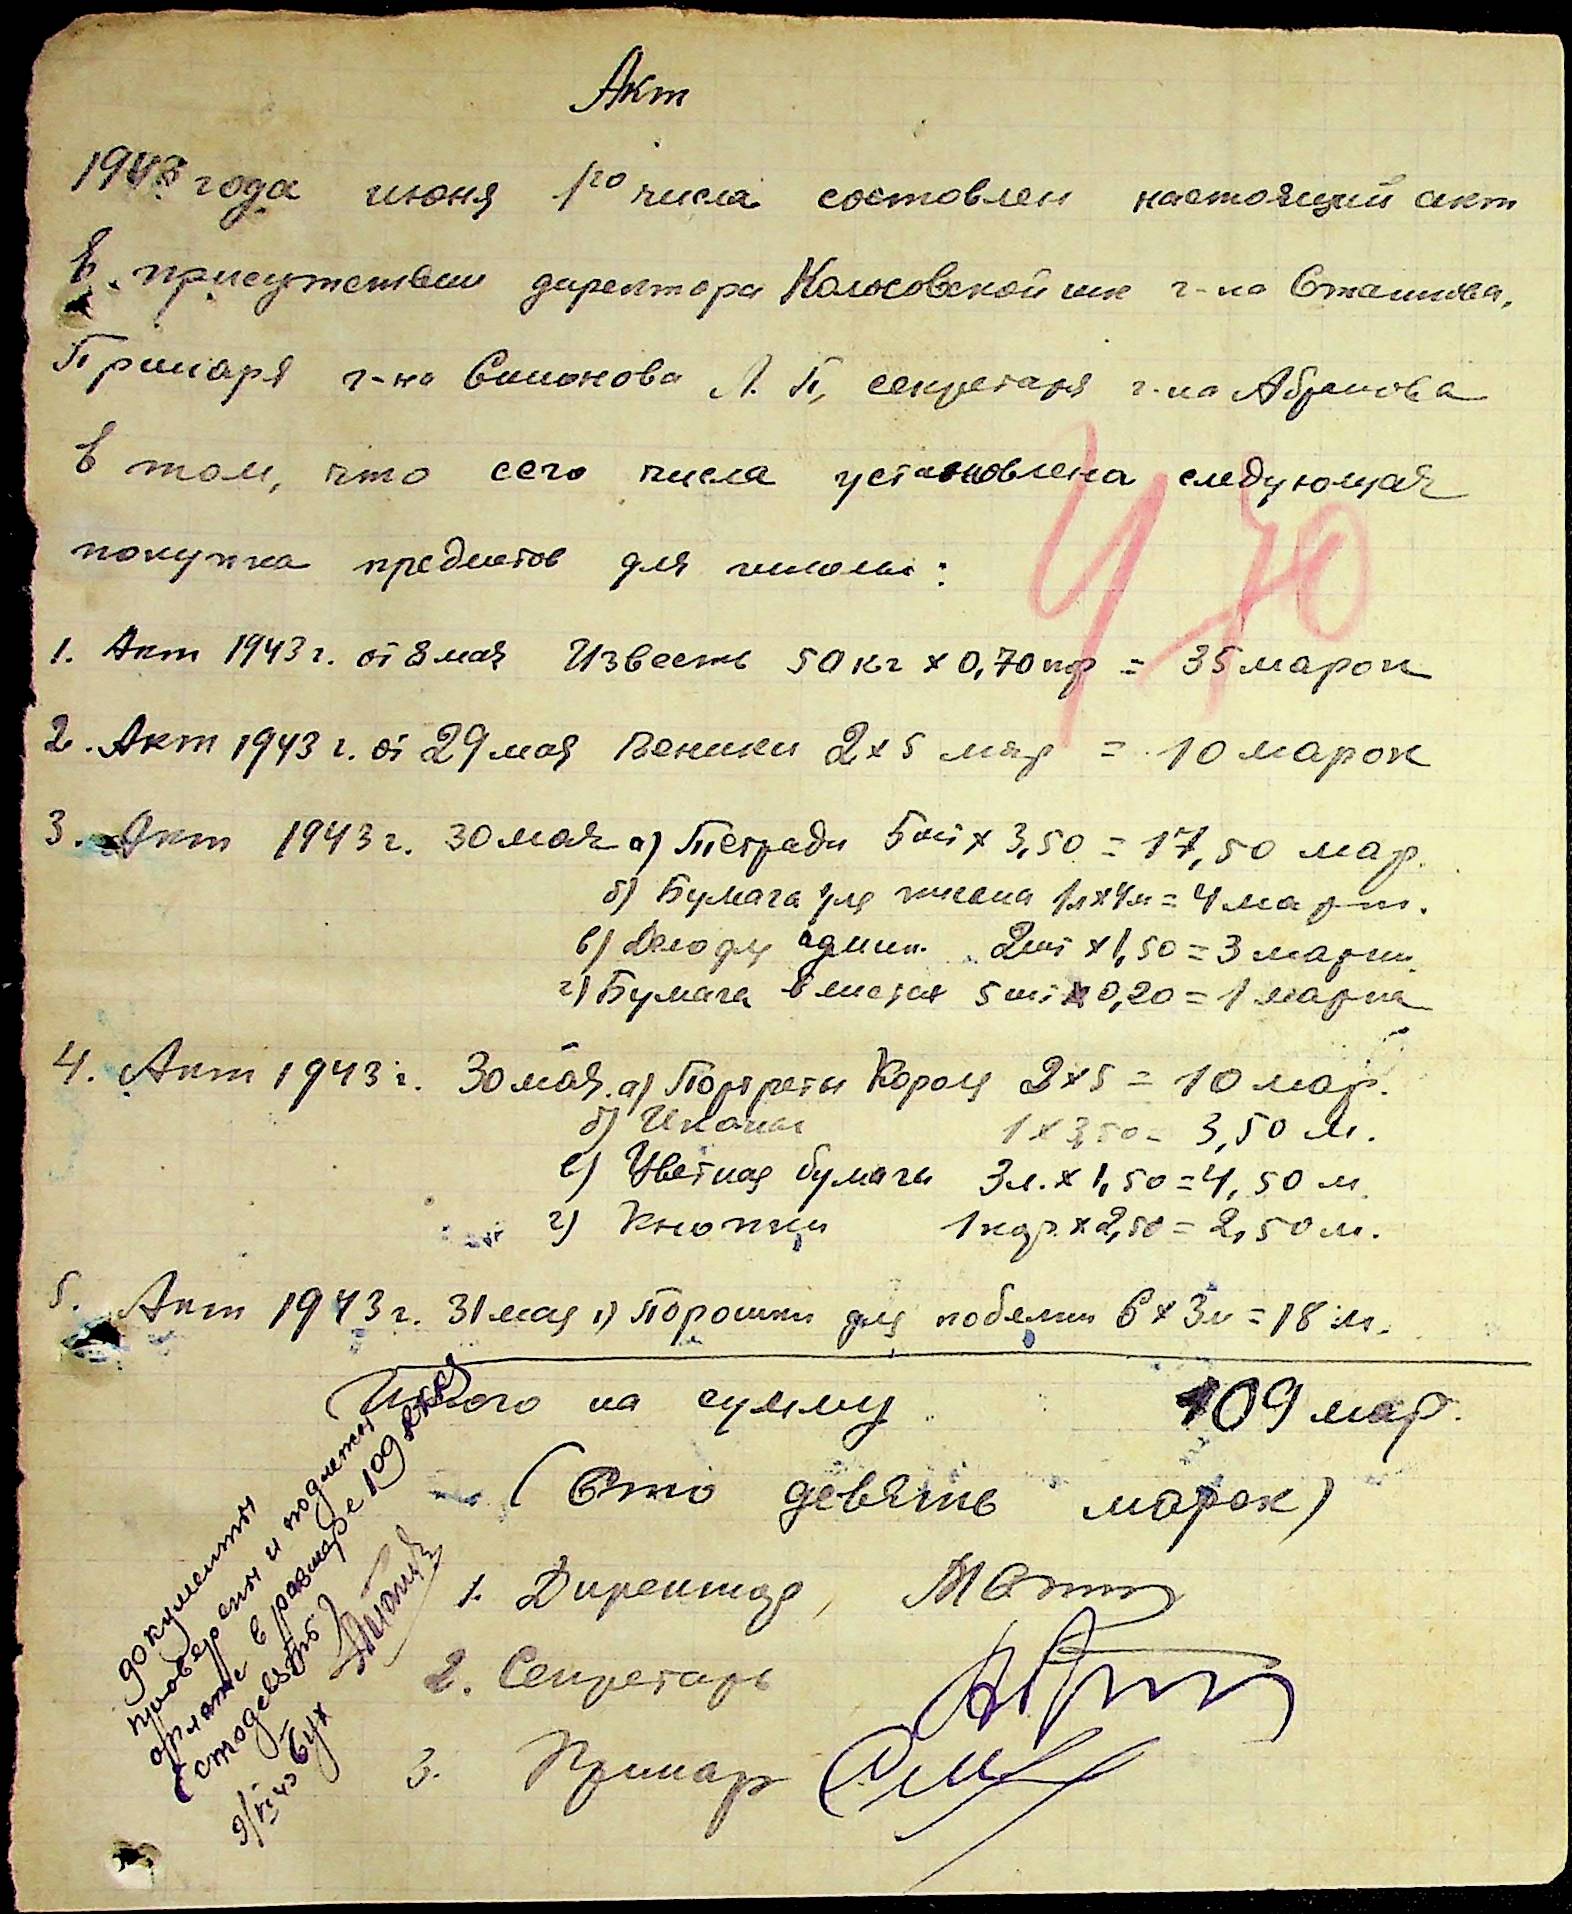 Акт
1943 года июня 1го числа составлен настоящий акт
в присутствии директора Колосовской шк г-на Сташкова,
Примаря г-на Симонова Л. П, секретаря г-на Абрамова
в том, что сего числа установлена следующая
покупка предметов для школы:
470
1. Акт 1943 г. от 8 мая Известь 50 кг х 0,70 пф = 35 марок
2. Акт 1943 г. от 29 мая Веники 2 х 5 мар = 10 марок
3. Акт 1943 г. 30 мая а) Тетради 5 шт х 3,50 = 17,50 мар.
б) Бумага для письма 1л х 4м = 4 марк.
в) Дело для админ. 2 шт х 1,50 = 3 марки.
г) Бумага в листах 5 шт х 0,20 = 1 марка
4. Акт 1943 г. 30 мая. а) Портреты Короля 2 х 5 = 10 мар.
б) Иконы 1 х 3,50 = 3,50 м.
в) Цветная бумага 3 л. х 1,50 = 4,50 м.
г) Кнопки 1 кор. х 2,50 = 2,50 м.
5. Акт 1943 г. 31 мая Порошки для побелки 6 х 3м = 18 м.
Итого на сумму 109 мар.
(Сто девять марок)
1. Директор,
2. Секретарь
3. Примар
документы
проверены и подлежат
оплате в размере 109
(сто девять)
9/VI 43 Бух